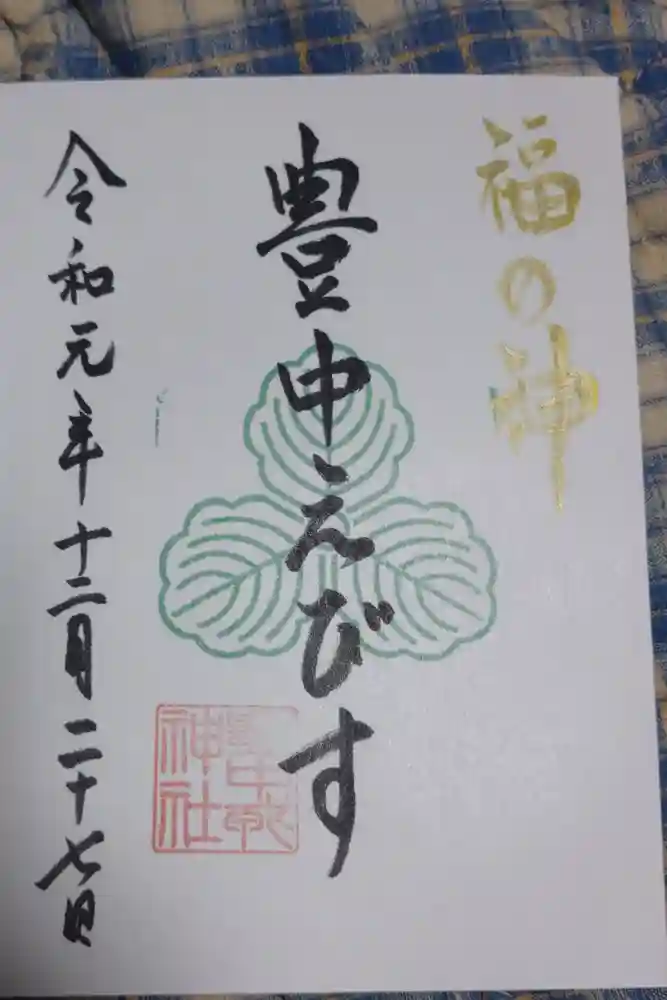 福の神
豊中えびす
令和元年十二月二十七日
神社